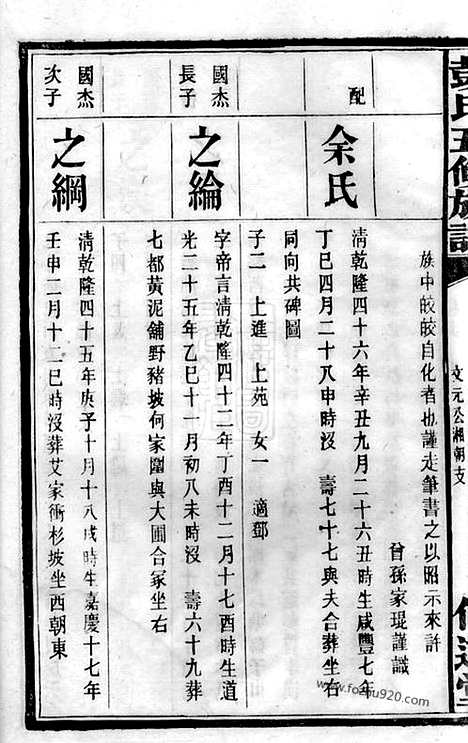 族中皎皎自化者也謹走筆書之以昭示來許
曾孫家琨謹識
配
余氏
清乾隆四十六年辛丑九月二十六丑時生咸豐七年
丁巳四月二十八申時沒 壽七十七與夫合葬坐右
同向共碑圖
子二 上進 上苑 女一 適鄧
國杰
長子
之綸
字帝言清乾隆四十二年丁酉十二月十七酉時生道
光二十五年乙巳十一月初八未時沒 壽六十九葬
七都黃泥舖野豬坡何家圍與大圃合冢坐右
國杰
次子
之綱
清乾隆四十五年庚子十月十八戌時生嘉慶十七年
壬申二月十二巳時沒葬艾家衝杉坡坐酉朝東
彭氏五修族譜
文元公湘朝支
www.foxpu920.com